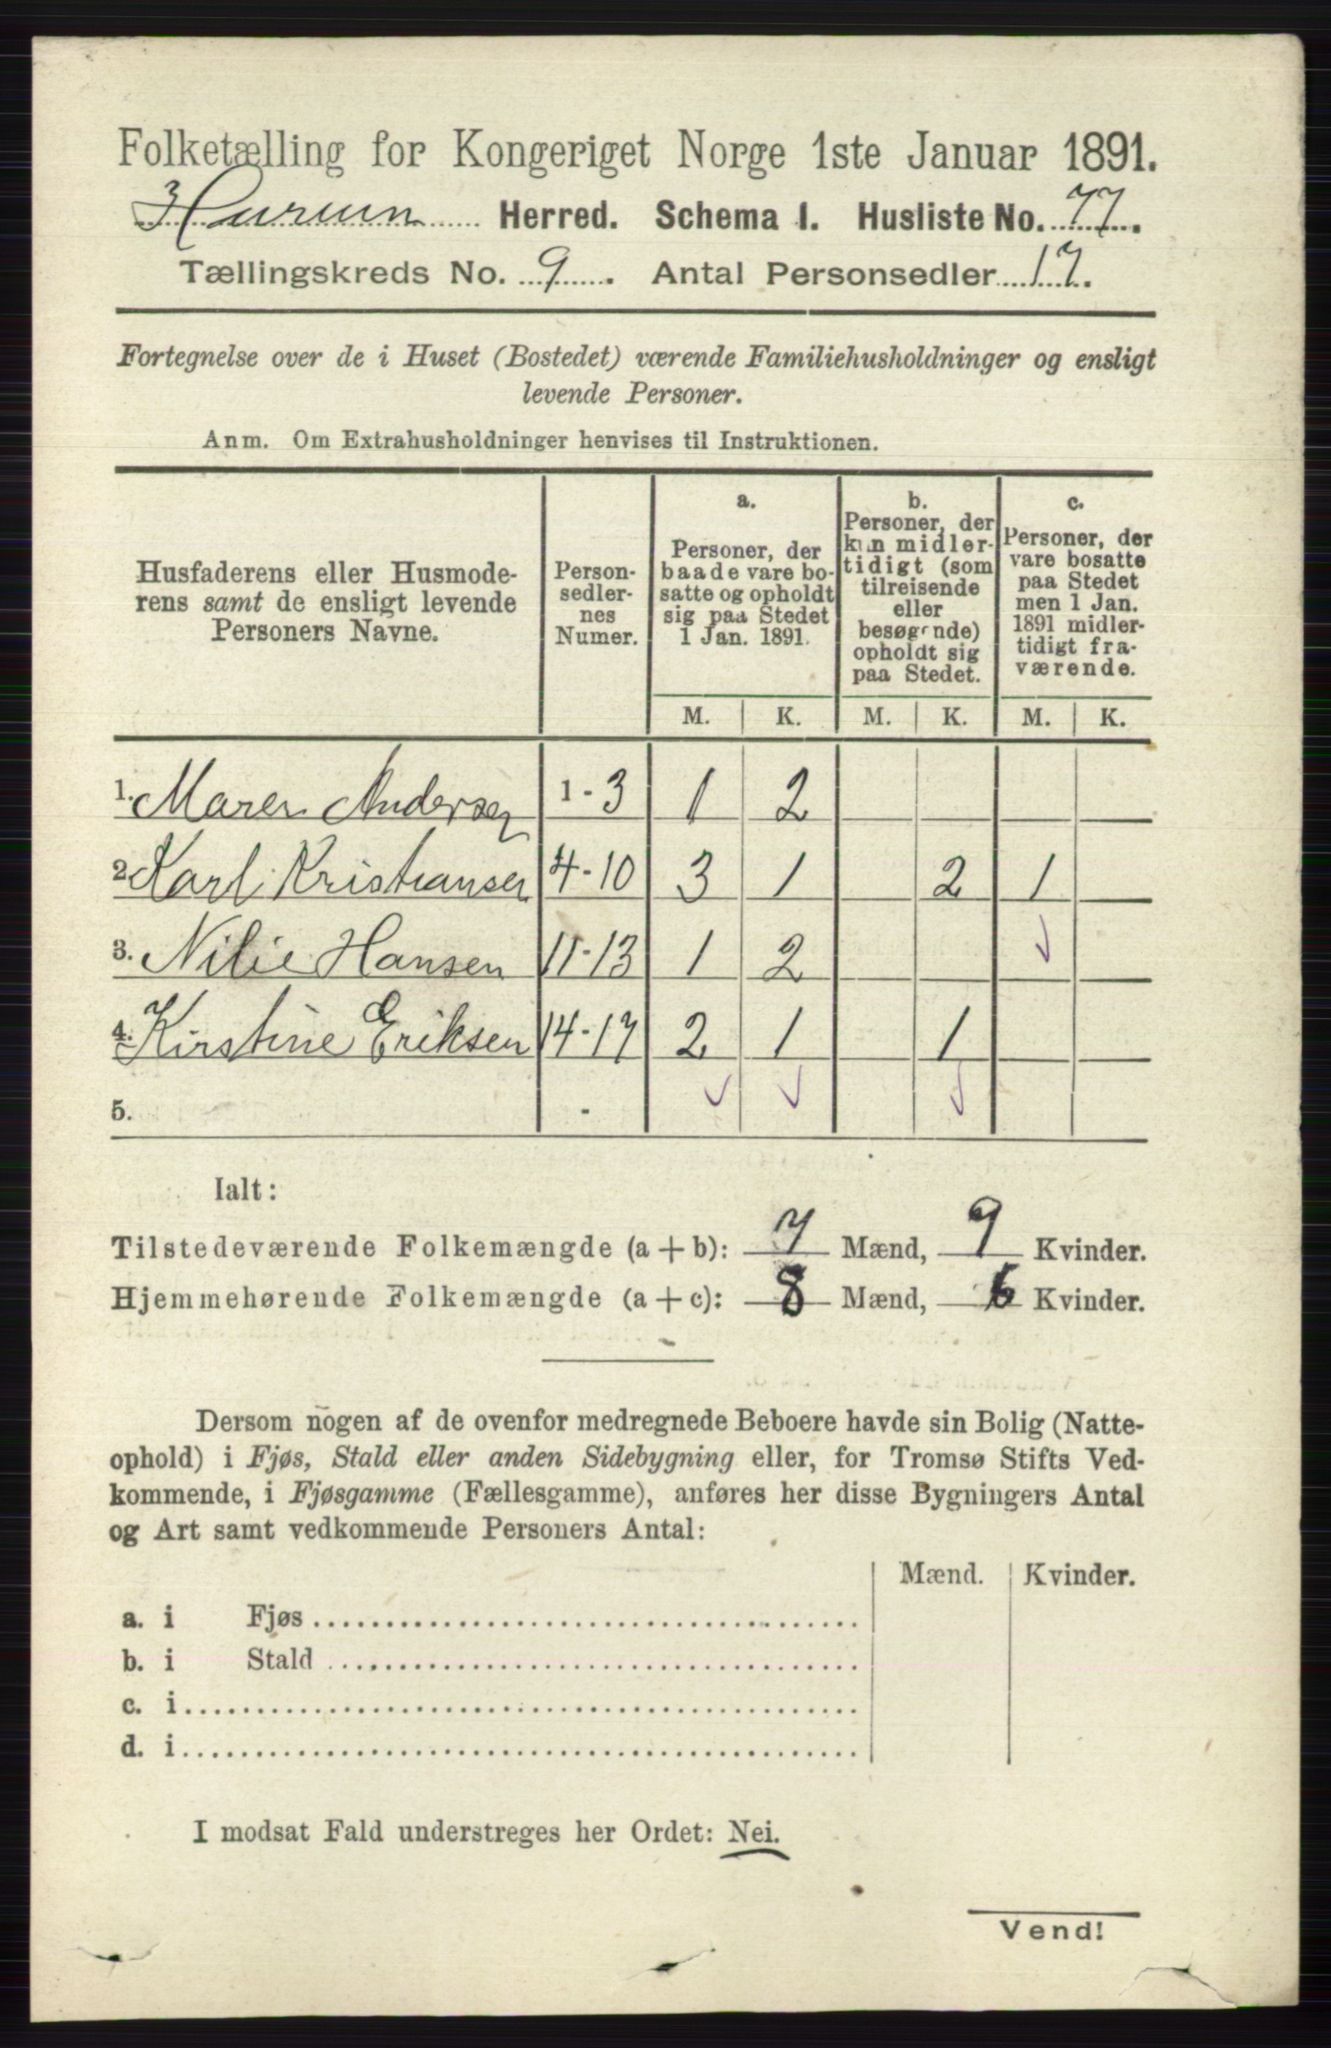 Folketælling for Kongeriget Norge 1ste Januar 1891.
Hurum Herred. Schema I. Husliste No. 77.
Tællingskreds No. 9. Antal Personsedler 17.
Fortegnelse over de i Huset (Bostedet) værende Familiehusholdninger og ensligt
levende Personer.
Anm. Om Extrahusholdninger henvises til Instruktionen.
Husfaderens eller Husmode-
rens samt de ensligt levende
Personers Navne.
Person-
sedler-
nes
Numer.
a.
Personer, der
baade vare bo-
satte og opholdt
sig paa Stedet
1 Jan. 1891.
b.
Personer, der
kun midler-
tidigt (som
tilreisende
eller
besøgende)
opholdt sig
paa Stedet.
c.
Personer, der
vare bosatte
paa Stedet
men 1 Jan.
1891 midler-
tidigt fra-
værende.
M. K. M. K. M. K.
1. Maren Andersen 1-3 1 2
2. Karl Kristiansen 4-10 3 1 2 1
3. Nilie Hansen 11-13 1 2
4. Kirstine Eriksen 14-17 2 1 1
5. -
Ialt:
Tilstedeværende Folkemængde (a + b): 7 Mænd, 9 Kvinder.
Hjemmehørende Folkemængde (a + c): 8 Mænd, 6 Kvinder.
Dersom nogen af de ovenfor medregnede Beboere havde sin Bolig (Natte-
ophold) i Fjøs, Stald eller anden Sidebygning eller, for Tromsø Stifts Ved-
kommende, i Fjøsgamme (Fællesgamme), anføres her disse Bygningers Antal
og Art samt vedkommende Personers Antal:
Mænd. Kvinder.
a. i Fjøs
b. i Stald
c. i
d. i
I modsat Fald understreges her Ordet: Nei.
Vend!